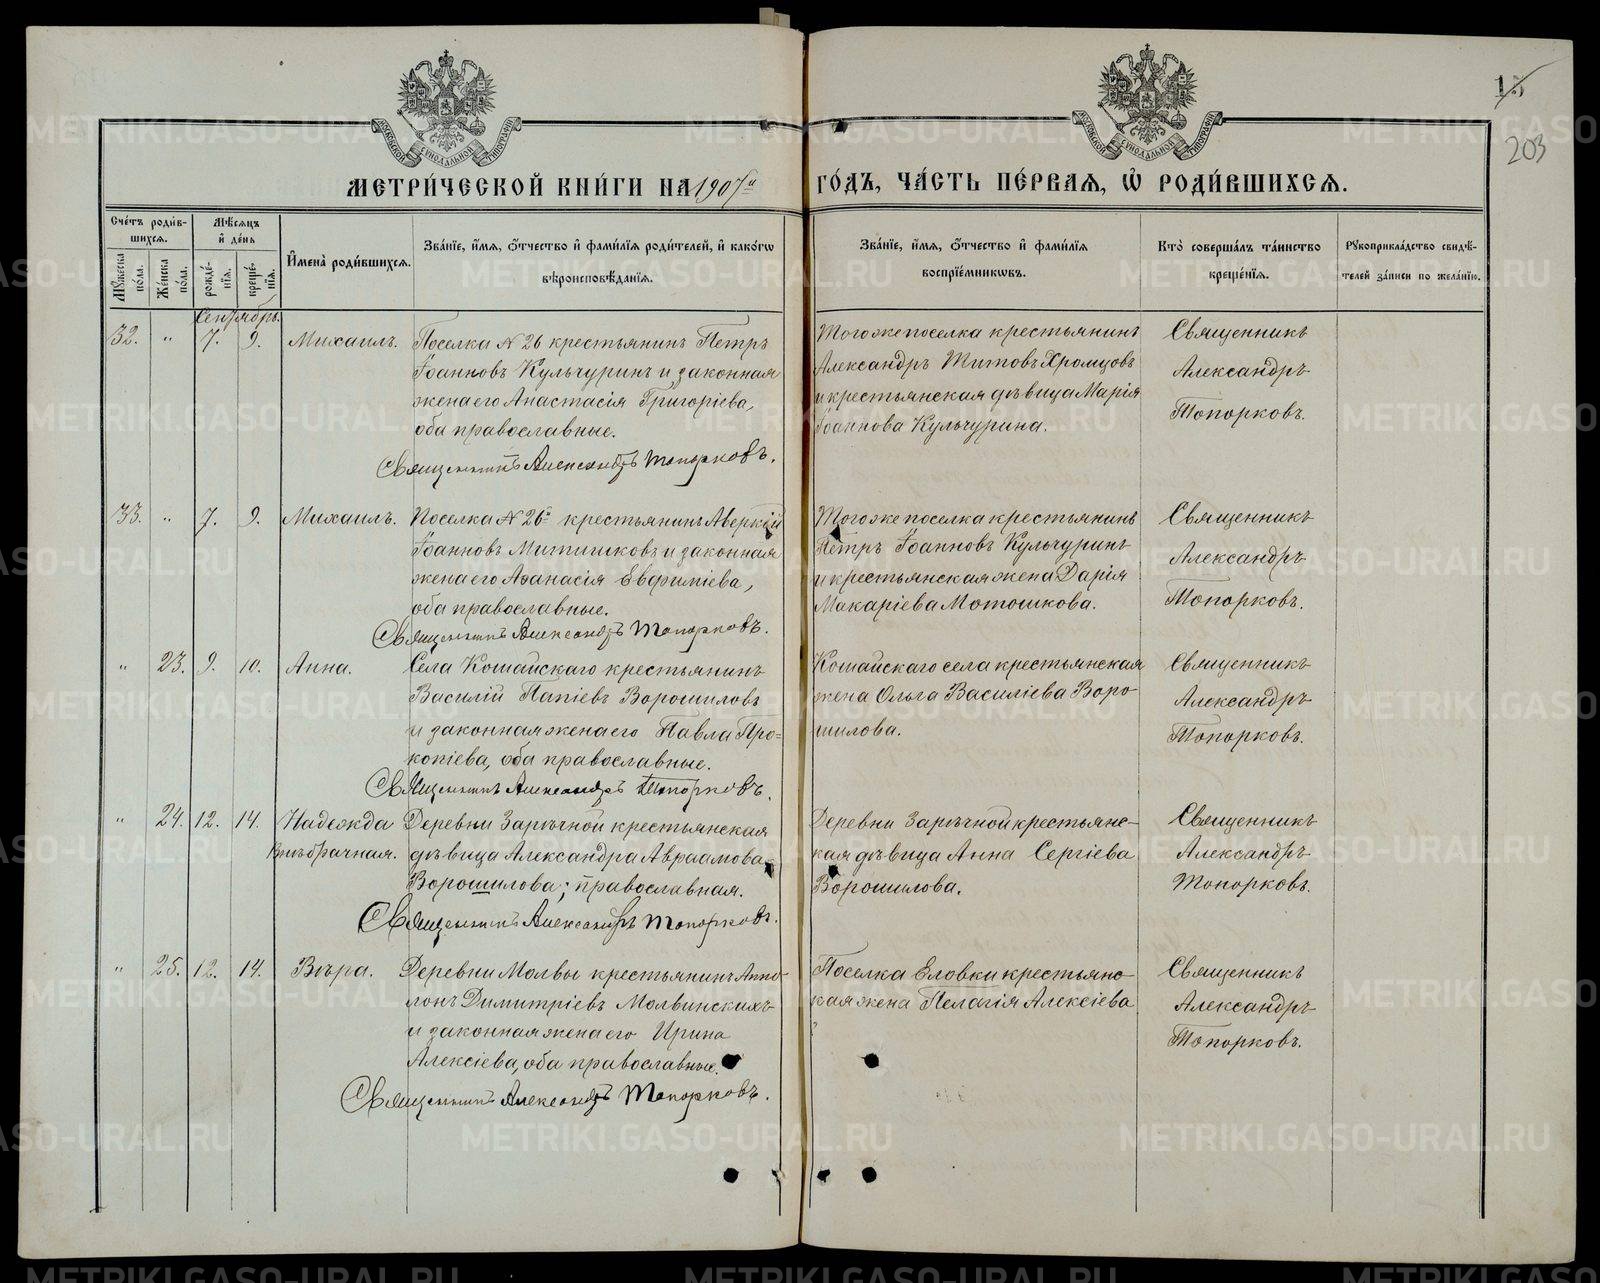 15
203
МЕТРИЧЕСКОЙ КНИГИ НА 1907й ГОДЪ, ЧАСТЬ ПЕРВАЯ, Ѡ РОДИВШИХСЯ.
Счетъ родив-
шихся.
Мужеска
пола.
Женска
пола.
Мѣсяцъ
и день
рожде-
нія.
креще-
нія.
Имена родившихся.
Званіе, имя, отчество и фамилія родителей, и какогѡ
вѣроисповѣданія.
Званіе, имя, отчество и фамилія
воспріемникѡвъ.
Кто совершалъ таинство
крещенія.
Рукоприкладство свидѣ-
телей записи по желанію.
Сентябрь.
32. " 7. 9. Михаилъ.
Поселка №26 крестьянинъ Петръ
Іоанновъ Кульчуринъ и законная
жена его Анастасія Григоріева,
оба православные.
Священникъ Александръ Топорковъ.
Тогоже поселка крестьянинъ
Александръ Титовъ Хромцовъ
и крестьянская дѣвица Марія
Іоаннова Кульчурина.
Священникъ
Александръ
Топорковъ.
33. " 7. 9. Михаилъ.
Поселка №26й крестьянинъ Аверкій
Іоанновъ Митишковъ и законная
жена его Аѳанасія Евфиміева,
оба православные.
Священникъ Александръ Топорковъ.
Тогоже поселка крестьянинъ
Петръ Іоанновъ Кульчуринъ
и крестьянская жена Дарія
Макаріева Мотошкова.
Священникъ
Александръ
Топорковъ.
" 23. 9. 10. Анна.
Села Кошайскаго крестьянинъ
Василій Папіевъ Ворошиловъ
и законная жена его Павла Про=
копіева, оба православные.
Священникъ Александръ Топорковъ.
Кошайскаго села крестьянская
жена Ольга Василіева Воро-
шилова.
Священникъ
Александръ
Топорковъ.
" 24. 12. 14. Надежда
Внѣбрачная.
Деревни Зарѣчной крестьянская
дѣвица Александра Авраамова
Ворошилова; православная.
Священникъ Александръ Топорковъ.
Деревни Зарѣчной крестьянс-
кая дѣвица Анна Сергіева
Ворошилова.
Священникъ
Александръ
Топорковъ.
" 25. 12. 14. Вѣра.
Деревни Молвы крестьянинъ Аппо-
лонъ Димитріевъ Молвинскихъ
и законная жена его Ирина
Алексіева, оба православные.
Священникъ Александръ Топорковъ.
Поселка Еловки крестьянс-
кая жена Пелагія Алексіева
Священникъ
Александръ
Топорковъ.
METRIKI.GASO-URAL.RU